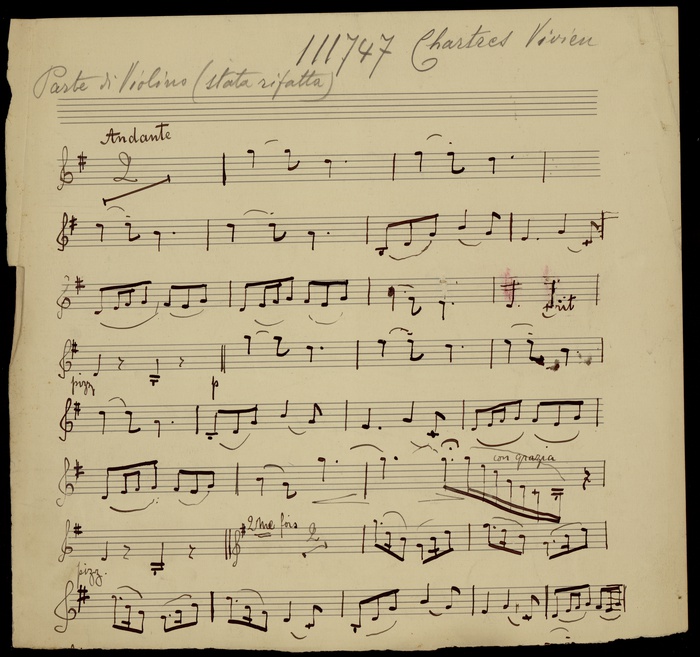 111747 Chartres Vivien
Parte di Violino (stata rifatta)
Andante
2
rit
pizz
p
con grazia
2me fois
2
pizz.